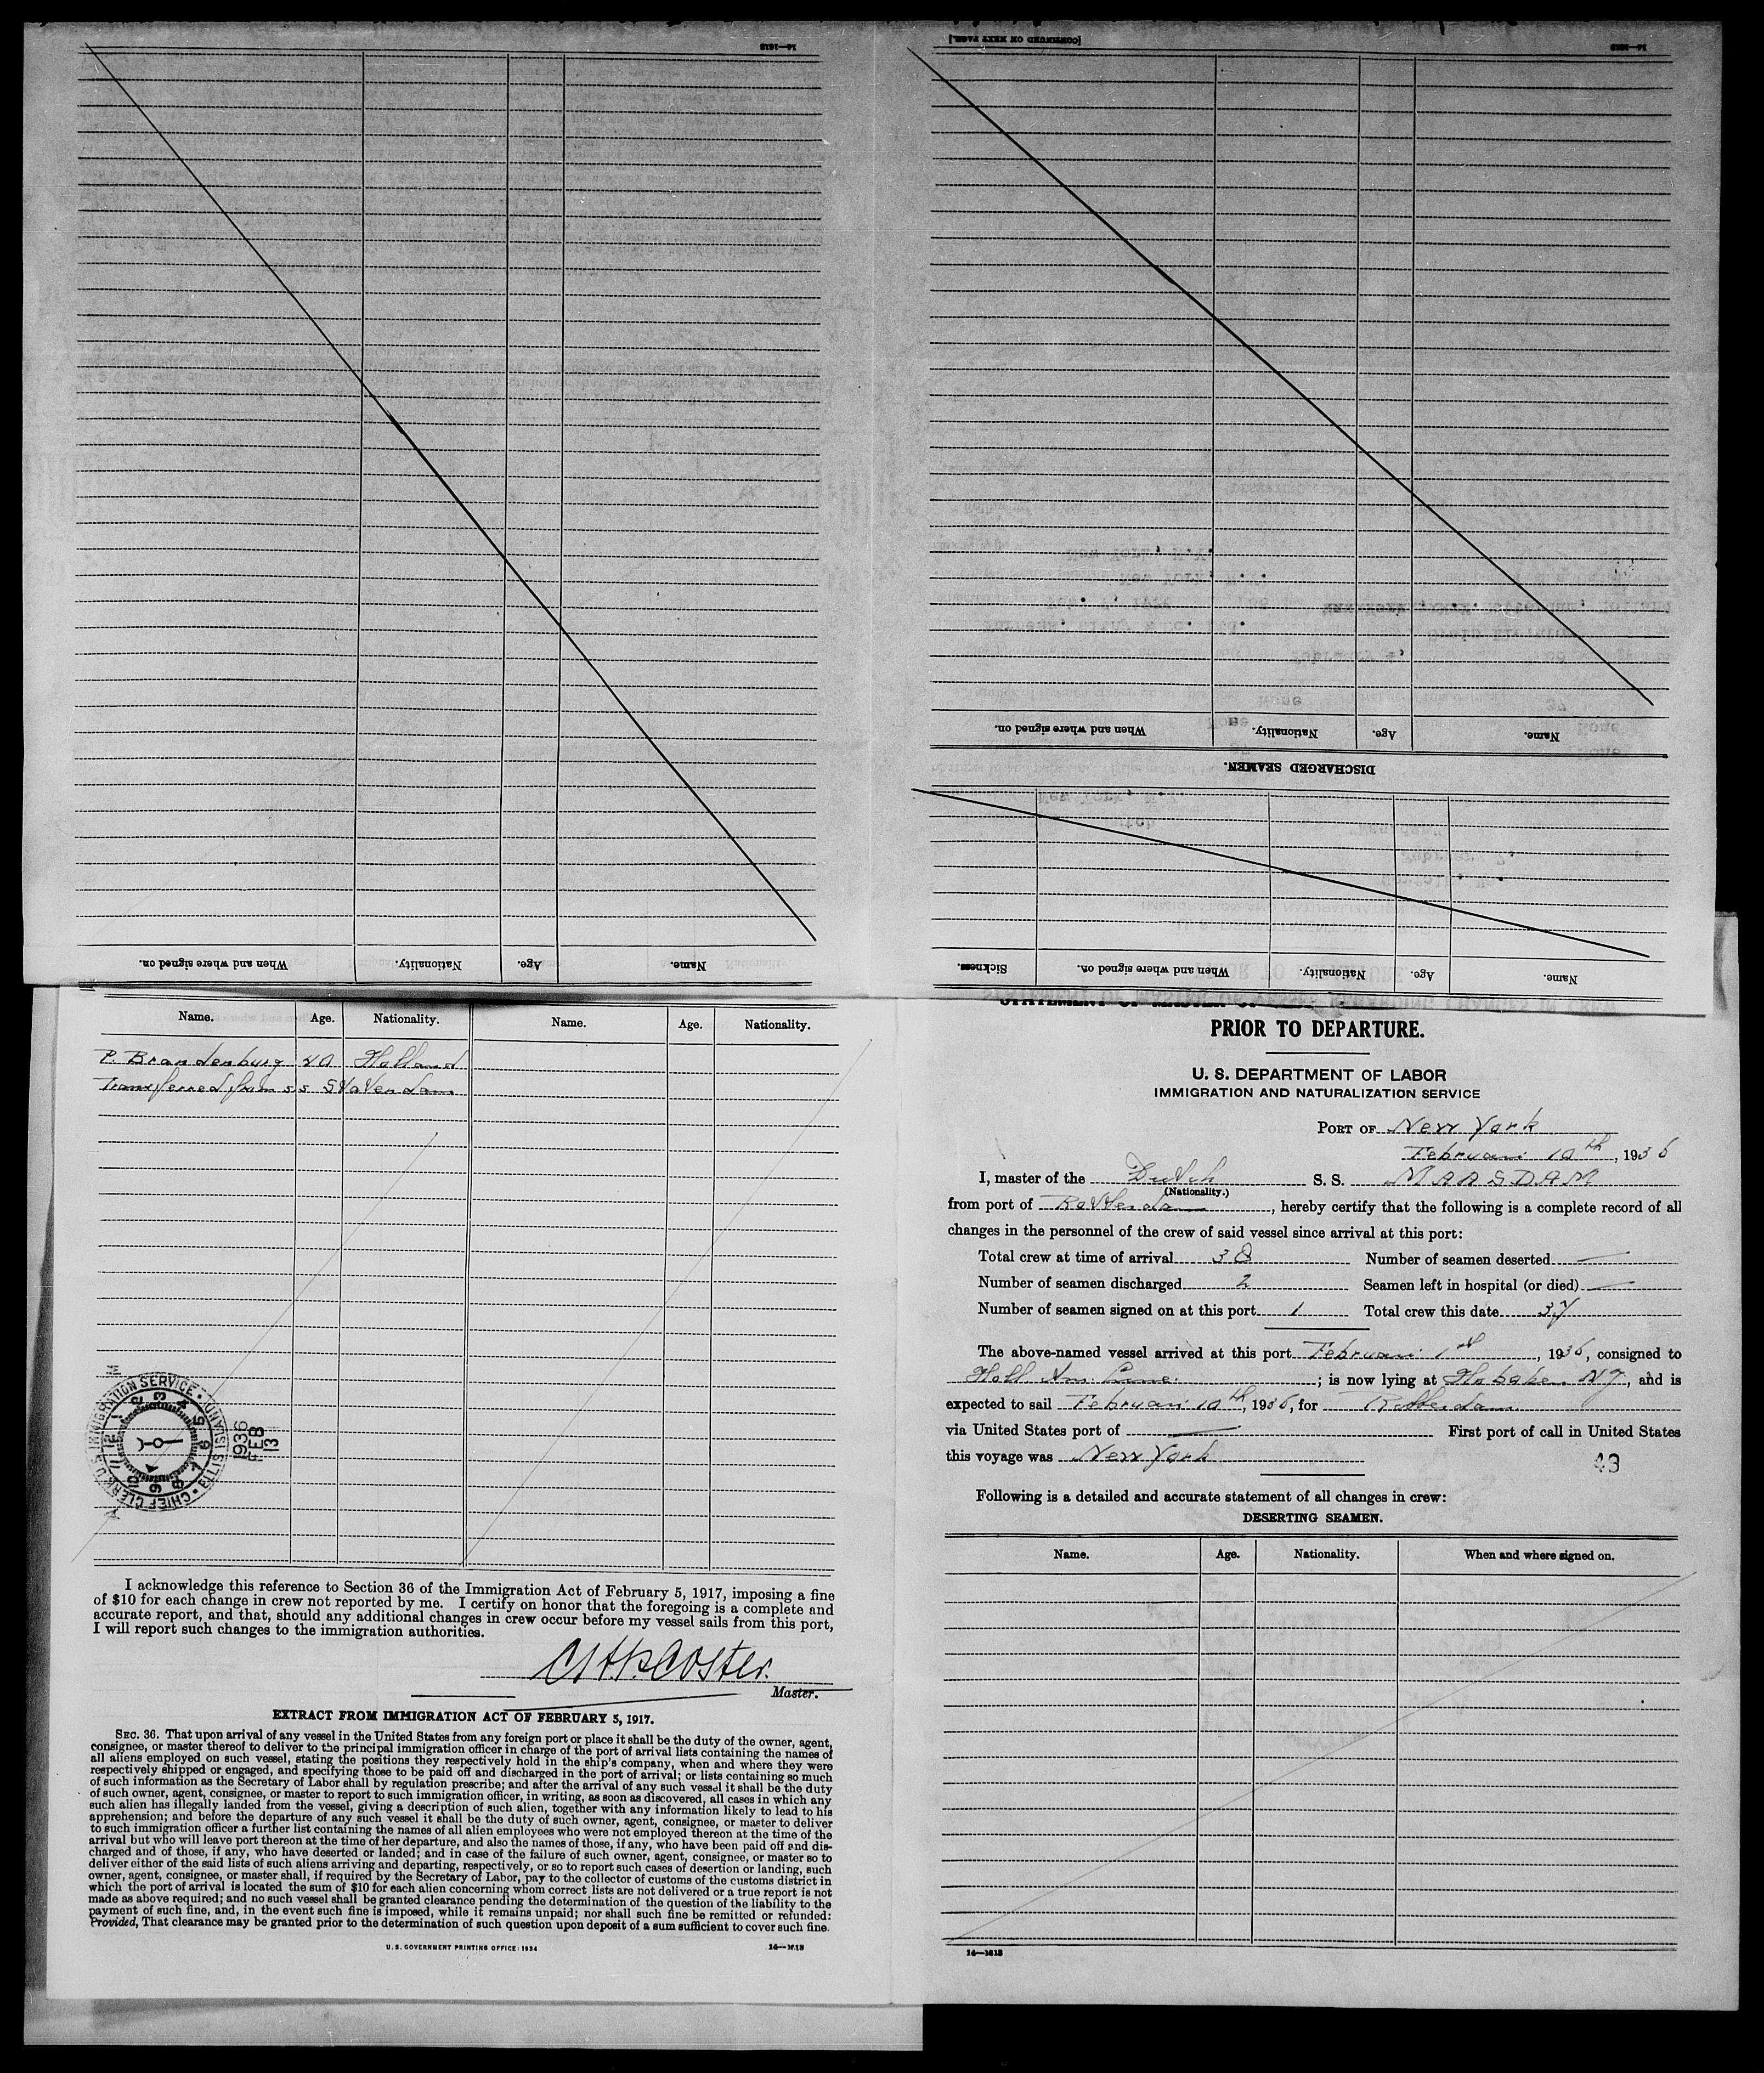 14—1618
[CONTINUED ON NEXT PAGE.]
14—1618
When and where signed on. Nationality. Age. Name.
DISCHARGED SEAMEN.
Sickness. When and where signed on. Nationality. Age. Name.
When and where signed on. Nationality. Age. Name.
Name. Age. Nationality. Name. Age. Nationality.
P. Brandenburg 40 Holland
Transferred from s s Statendam
U.S. IMMIGRATION SERVICE • ELLIS ISLAND • CHIEF CLERK
1936
FEB
13
I acknowledge this reference to Section 36 of the Immigration Act of February 5, 1917, imposing a fine
of $10 for each change in crew not reported by me. I certify on honor that the foregoing is a complete and
accurate report, and that, should any additional changes in crew occur before my vessel sails from this port,
I will report such changes to the immigration authorities.
Coster.
Master.
EXTRACT FROM IMMIGRATION ACT OF FEBRUARY 5, 1917.
SEC. 36. That upon arrival of any vessel in the United States from any foreign port or place it shall be the duty of the owner, agent,
consignee, or master thereof to deliver to the principal immigration officer in charge of the port of arrival lists containing the names of
all aliens employed on such vessel, stating the positions they respectively hold in the ship's company, when and where they were
respectively shipped or engaged, and specifying those to be paid off and discharged in the port of arrival; or lists containing so much
of such information as the Secretary of Labor shall by regulation prescribe; and after the arrival of any such vessel it shall be the duty
of such owner, agent, consignee, or master to report to such immigration officer, in writing, as soon as discovered, all cases in which any
such alien has illegally landed from the vessel, giving a description of such alien, together with any information likely to lead to his
apprehension; and before the departure of any such vessel it shall be the duty of such owner, agent, consignee, or master to deliver
to such immigration officer a further list containing the names of all alien employees who were not employed thereon at the time of the
arrival but who will leave port thereon at the time of her departure, and also the names of those, if any, who have been paid off and dis-
charged and of those, if any, who have deserted or landed; and in case of the failure of such owner, agent, consignee, or master so to
deliver either of the said lists of such aliens arriving and departing, respectively, or so to report such cases of desertion or landing, such
owner, agent, consignee, or master shall, if required by the Secretary of Labor, pay to the collector of customs of the customs district in
which the port of arrival is located the sum of $10 for each alien concerning whom correct lists are not delivered or a true report is not
made as above required; and no such vessel shall be granted clearance pending the determination of the question of the liability to the
payment of such fine, and, in the event such fine is imposed, while it remains unpaid; nor shall such fine be remitted or refunded:
Provided, That clearance may be granted prior to the determination of such question upon deposit of a sum sufficient to cover such fine.
U.S. GOVERNMENT PRINTING OFFICE: 1934 14—1618
PRIOR TO DEPARTURE.
U. S. DEPARTMENT OF LABOR
IMMIGRATION AND NATURALIZATION SERVICE
PORT OF New York
Februari 10th, 1936
I, master of the Dutch S. S. MAASDAM
(Nationality.)
from port of Rotterdam, hereby certify that the following is a complete record of all
changes in the personnel of the crew of said vessel since arrival at this port:
Total crew at time of arrival 38 Number of seamen deserted —
Number of seamen discharged 2 Seamen left in hospital (or died) —
Number of seamen signed on at this port 1 Total crew this date 37
The above-named vessel arrived at this port Februari 1st, 1936, consigned to
Holl Am Line; is now lying at Hoboken NJ, and is
expected to sail Februari 10th, 1936, for Rotterdam
via United States port of — First port of call in United States
this voyage was New York
43
Following is a detailed and accurate statement of all changes in crew:
DESERTING SEAMEN.
Name. Age. Nationality. When and where signed on.
14—1618